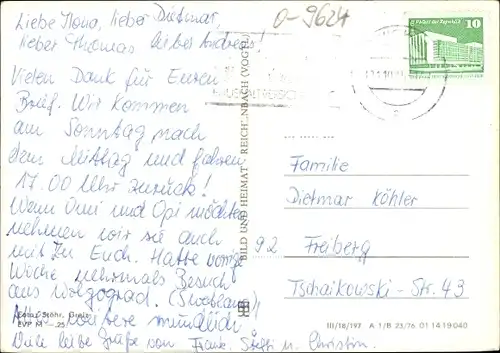 0-9624
Liebe Nona, lieber Dietmar,
lieber Thomas lieber Andreas!
Vielen Dank für Euren
Brief. Wir kommen
am Sonntag nach
dem Mittag und fahren
17.00 Uhr zurück!
Wenn Omi und Opi möchten
nehmen wir sie auch
mit zu Euch. Hatte vorige
Woche nochmals Besuch
aus Wolgograd. (Swetlana)!
Alles weitere mündlich
Viele liebe Grüße von Frank, Steffi u. Christin.
10
BILD UND HEIMAT REICHENBACH (VOGTL)
Familie
Dietmar Köhler
92 Freiberg
Tschaikowski-Str. 43
Foto: Stöhr, Greiz
EVP M -.25
III/18/197 A 1/B 23/76 01 14 19 040